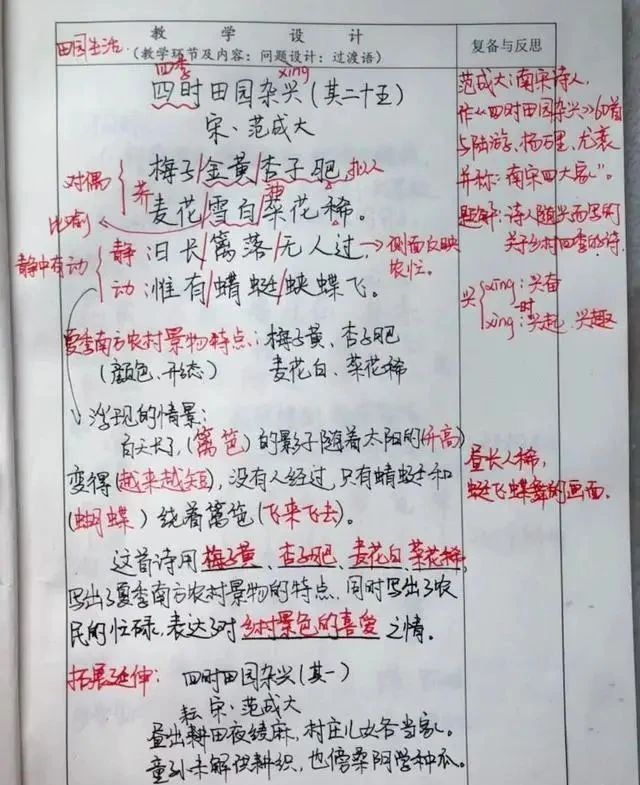 教 学 设 计
(教学环节及内容：问题设计：过渡语)
复备与反思
田园生活
四季
xìng
四时田园杂兴(其二十五)
宋·范成大
对偶
梅子/金黄/杏子肥 拟人
养
比喻
麦花/雪白/菜花稀。
静中有动
静：日长/篱落/无人过，→侧面反映
农忙。
动：惟有/蜻蜓/蛱蝶飞。
夏季南方农村景物特点：梅子黄、杏子肥
(颜色、形态) 麦花白、菜花稀
浮现的情景：
白天长了，(篱笆)的影子随着太阳的(升高)
变得(越来越短)，没有人经过，只有蜻蜓和
(蝴蝶)绕着篱笆(飞来飞去)。
这首诗用梅子黄、杏子肥、麦花白、菜花稀，
写出了夏季南方农村景物的特点，同时写出了农
民的忙碌，表达了对乡村景色的喜爱之情。
拓展延伸：四时田园杂兴(其一)
宋·范成大
昼出耕田夜绩麻，村庄儿女各当家。
童孙未解供耕织，也傍桑阴学种瓜。
范成大：南宋诗人，
作《四时田园杂兴》60首
与陆游、杨万里、尤袤
并称：南宋四大家"。
题解：诗人随兴而写的
关于乡村四季的诗。
兴
xīng：兴奋
一时
xìng：兴起、兴趣
昼长人稀，
蜓飞蝶舞的画面。